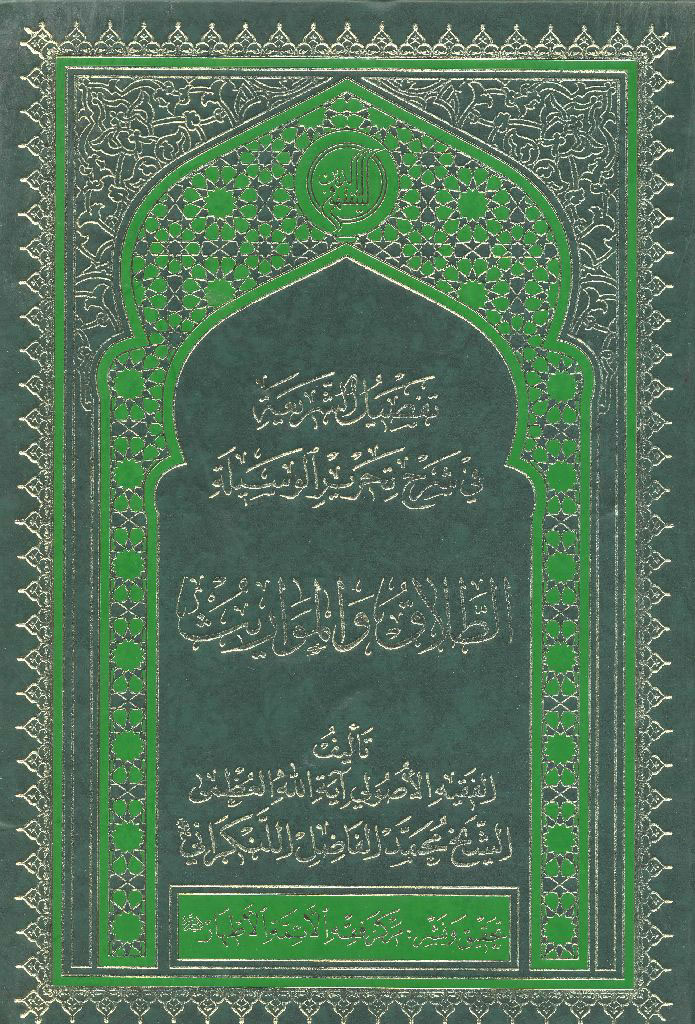 تَفصِيلُ الشَّرِيعَةِ
فِي شَرْحِ تَحْرِيرِ الوَسِيلَةِ
الطَّلَاقُ وَالْمَوَارِيثُ
تَأْلِيفُ
الفَقِيهِ الأُصُولِيِّ آيَةِ اللهِ العُظْمَى
الشَّيْخِ مُحَمَّدِ الفَاضِلِ اللَّنْكَرَانِيِّ
تحقيق ونشر: مركز فقه الأئمة الأطهار